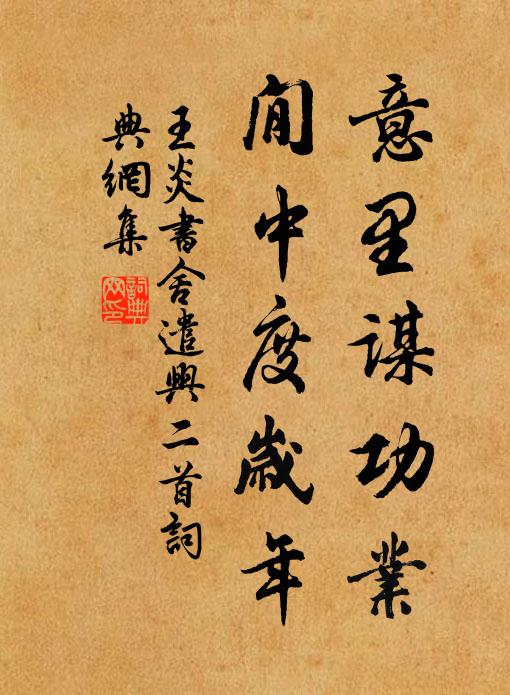 意里謀功業
閒中度歲年
王炎書舍遣興二首詞
典網集
詞典
网印